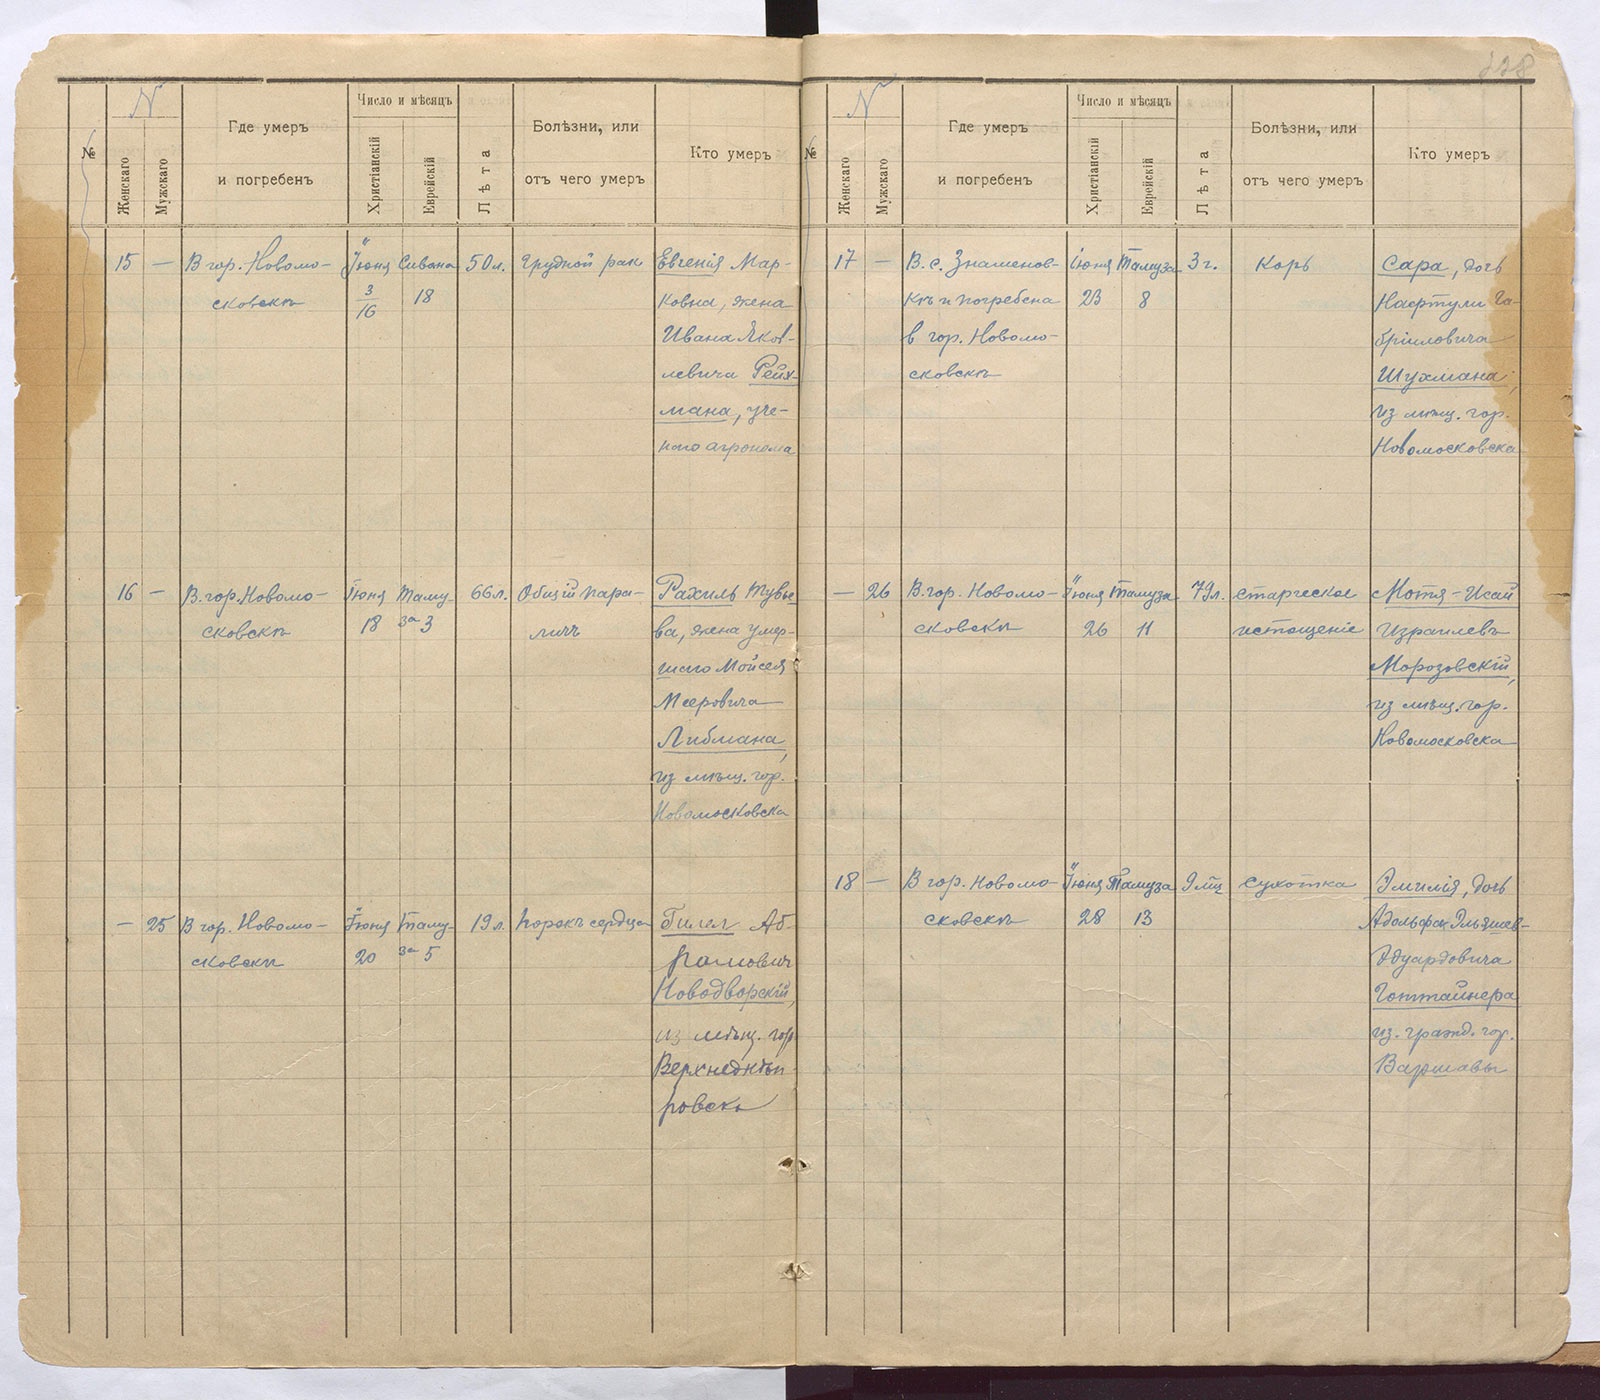 128
№
N
Женскаго
Мужскаго
Где умеръ
и погребенъ
Число и мѣсяцъ
Христіанскій
Еврейскій
Лѣта
Болѣзни, или
отъ чего умеръ
Кто умеръ
15 — В гор. Новомо-
сковскѣ
Іюня
3/16
Сивана
18
50 л.
грудной рак
Евгенія Мар-
ковна, жена
Ивана Яков-
левича Рейх-
мана, уче-
ного агронома
16 — В. гор. Новомо-
сковскѣ
Іюня
18
Таму-
за 3
66 л.
Общій пара-
личъ
Рахиль Тувье
ва, жена умер-
шаго Мойсея
Меєровича
Либмана,
из мѣщ. гор.
Новомосковска
— 25 В гор. Новомо-
сковскѣ
Іюня
20
Таму-
за 5
19 л.
порокъ сердца
Гилел Аб-
рамович
Новодворскій,
из мѣщ. гор
Верхнеднѣп
ровска
№
N
Женскаго
Мужскаго
Где умеръ
и погребенъ
Число и мѣсяцъ
Христіанскій
Еврейскій
Лѣта
Болѣзни, или
отъ чего умеръ
Кто умеръ
17 — В. с. Знаменов-
кѣ и погребена
в гор. Новомо-
сковскѣ
Іюня
23
Тамуза
8
3 г.
Корь
Сара, дочь
Нафтули Га-
бріиловича
Шухмана,
из мѣщ. гор.
Новомосковска
— 26 В гор. Новомо-
сковскѣ
Іюня
26
Тамуза
11
79 л.
старческое
истощеніе
Мотя-Исай
Израилевъ
Морозовскій,
из мѣщ. гор.
Новомосковска
18 — В гор. Новомо-
сковскѣ
Іюня
28
Тамуза
13
9 мц
сухотка
Эмилія, дочь
Адольфа
Эдуардовича
из. гражд. гор.
Варшавы